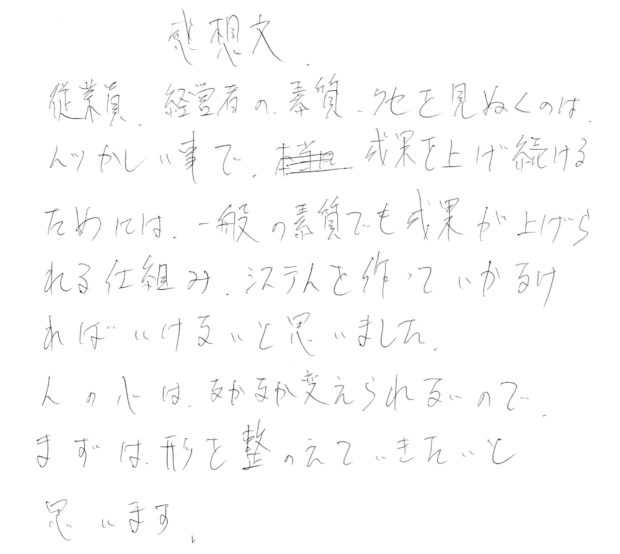 感想文
従業員、経営者の、素質、クセを見ぬくのは、
んづかしい事で、成果を上げ続ける
ためには、一般の素質でも成果が上げら
れる仕組み、システムを作っていかなけ
ればいけないと思いました。
人の心は、なかなか変えられないので、
まずは、形を整のえていきたいと
思います。